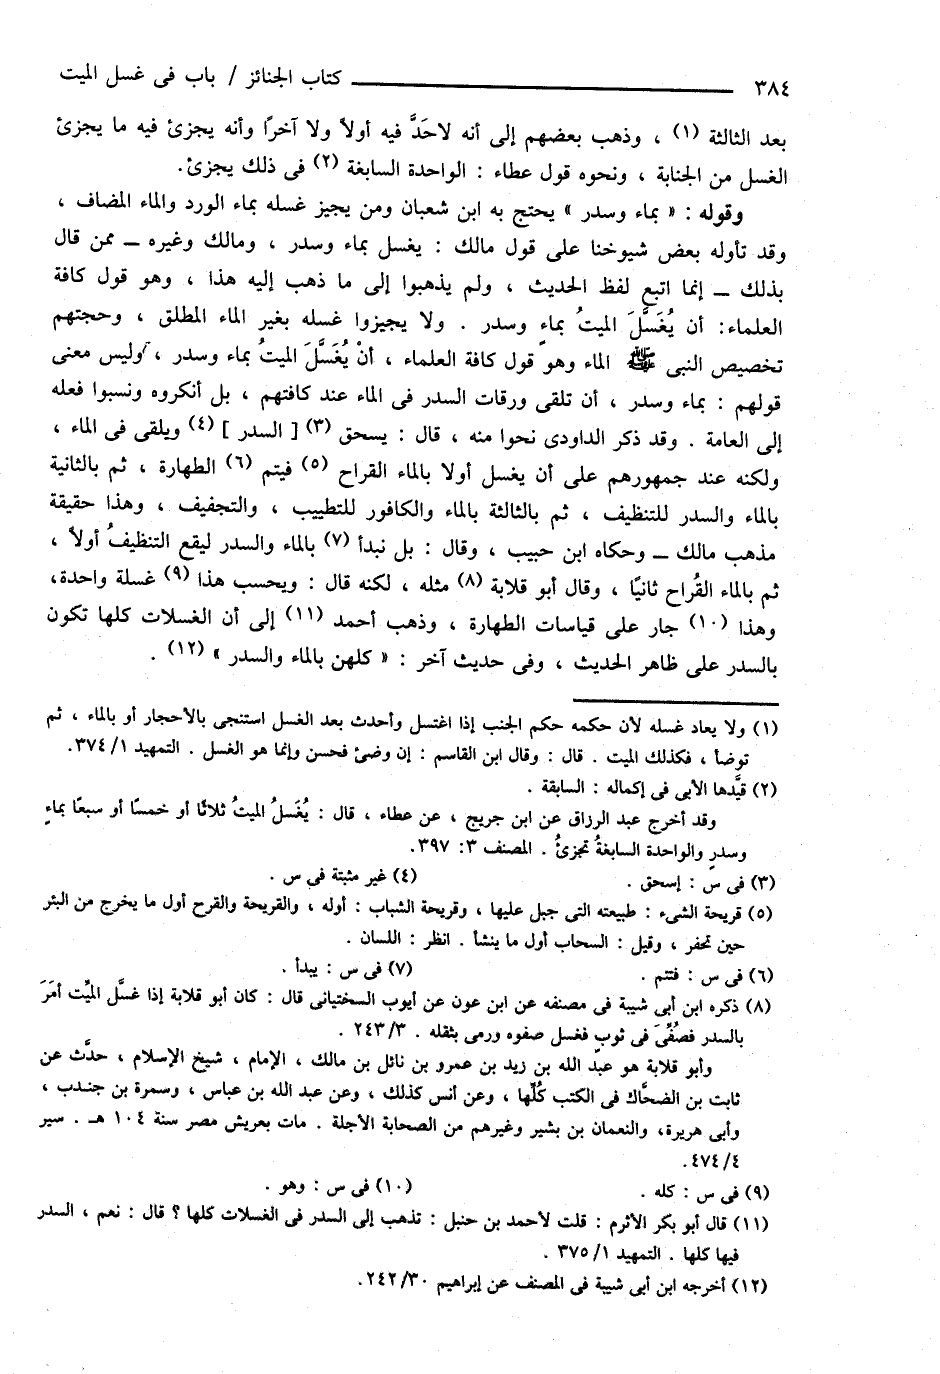 ٣٨٤ ــــــــــــــــــــ كتاب الجنائز / باب فى غسل الميت
بعد الثالثة (١) ، وذهب بعضهم إلى أنه لاحَدَّ فيه أولاً ولا آخرًا وأنه يجزئ فيه ما يجزئ
الغسل من الجنابة ، ونحوه قول عطاء : الواحدة السابغة (٢) فى ذلك يجزئ.
وقوله : « بماء وسدر » يحتج به ابن شعبان ومن يجيز غسله بماء الورد والماء المضاف ،
وقد تأوله بعض شيوخنا على قول مالك : يغسل بماء وسدر ، ومالك وغيره ــ ممن قال
بذلك ــ إنما اتبع لفظ الحديث ، ولم يذهبوا إلى ما ذهب إليه هذا ، وهو قول كافة
العلماء: أن يُغَسَّلَ الميتُ بماءٍ وسدر . ولا يجيزوا غسله بغير الماء المطلق ، وحجتهم
تخصيص النبى ﷺ الماء وهو قول كافة العلماء ، أنْ يُغَسَّلَ الميتُ بماء وسدر ، وليس معنى
قولهم : بماء وسدر ، أن تلقى ورقات السدر فى الماء عند كافتهم ، بل أنكروه ونسبوا فعله
إلى العامة . وقد ذكر الداودى نحوا منه ، قال : يسحق (٣) [ السدر ] (٤) ويلقى فى الماء ،
ولكنه عند جمهورهم على أن يغسل أولا بالماء القراح (٥) فيتم (٦) الطهارة ، ثم بالثانية
بالماء والسدر للتنظيف ، ثم بالثالثة بالماء والكافور للتطييب ، والتجفيف ، وهذا حقيقة
مذهب مالك ــ وحكاه ابن حبيب ، وقال : بل نبدأ (٧) بالماء والسدر ليقع التنظيفُ أولاً ،
ثم بالماء القُراح ثانيًا ، وقال أبو قلابة (٨) مثله ، لكنه قال : ويحسب هذا (٩) غسلة واحدة،
وهذا (١٠) جار على قياسات الطهارة ، وذهب أحمد (١١) إلى أن الغسلات كلها تكون
بالسدر على ظاهر الحديث ، وفى حديث آخر : « كلهن بالماء والسدر » (١٢) .
(١) ولا يعاد غسله لأن حكمه حكم الجنب إذا اغتسل وأحدث بعد الغسل استنجى بالأحجار أو بالماء ، ثم
توضأ ، فكذلك الميت . قال : وقال ابن القاسم : إن وضئ فحسن وإنما هو الغسل . التمهيد ٣٧٤/١.
(٢) قيَّدها الأبى فى إكماله : السابقة .
وقد أخرج عبد الرزاق عن ابن جريج ، عن عطاء ، قال : يُغَسلُ الميتُ ثلاثًا أو خمسًا أو سبعًا بماءٍ
وسدرٍ والواحدة السابغةُ تجزئُ . المصنف ٣: ٣٩٧.
(٣) فى س : إسحق . (٤) غير مثبتة فى س .
(٥) قريحة الشىء : طبيعته التى جبل عليها ، وقريحة الشباب : أوله ، والقريحة والقرح أول ما يخرج من البئر
حين تحفر ، وقيل : السحاب أول ما ينشأ . انظر : اللسان .
(٦) فى س : فتتم . (٧) فى س : يبدأ .
(٨) ذكره ابن أبى شيبة فى مصنفه عن ابن عون عن أيوب السختيانى قال : كان أبو قلابة إذا غسَّل الميِّت أمَرَ
بالسدر فصُفِّىَ فى ثوبٍ فغسل صفوه ورمى بثقله . ٢٤٣/٣ .
وأبو قلابة هو عبد الله بن زيد بن عمرو بن نائل بن مالك ، الإمام ، شيخ الإسلام ، حدَّث عن
ثابت بن الضحَّاك فى الكتب كُلِّها ، وعن أنس كذلك ، وعن عبد الله بن عباس ، وسمرة بن جندب ،
وأبى هريرة، والنعمان بن بشير وغيرهم من الصحابة الأجلة . مات بعريش مصر سنة ١٠٤ هـ . سير
٤٧٤/٤.
(٩) فى س : كله . (١٠) فى س : وهو .
(١١) قال أبو بكر الأثرم : قلت لأحمد بن حنبل : تذهب إلى السدر فى الغسلات كلها ؟ قال : نعم ، السدر
فيها كلها . التمهيد ٣٧٥/١ .
(١٢) أخرجه ابن أبى شيبة فى المصنف عن إبراهيم ٢٤٢/٣٠.